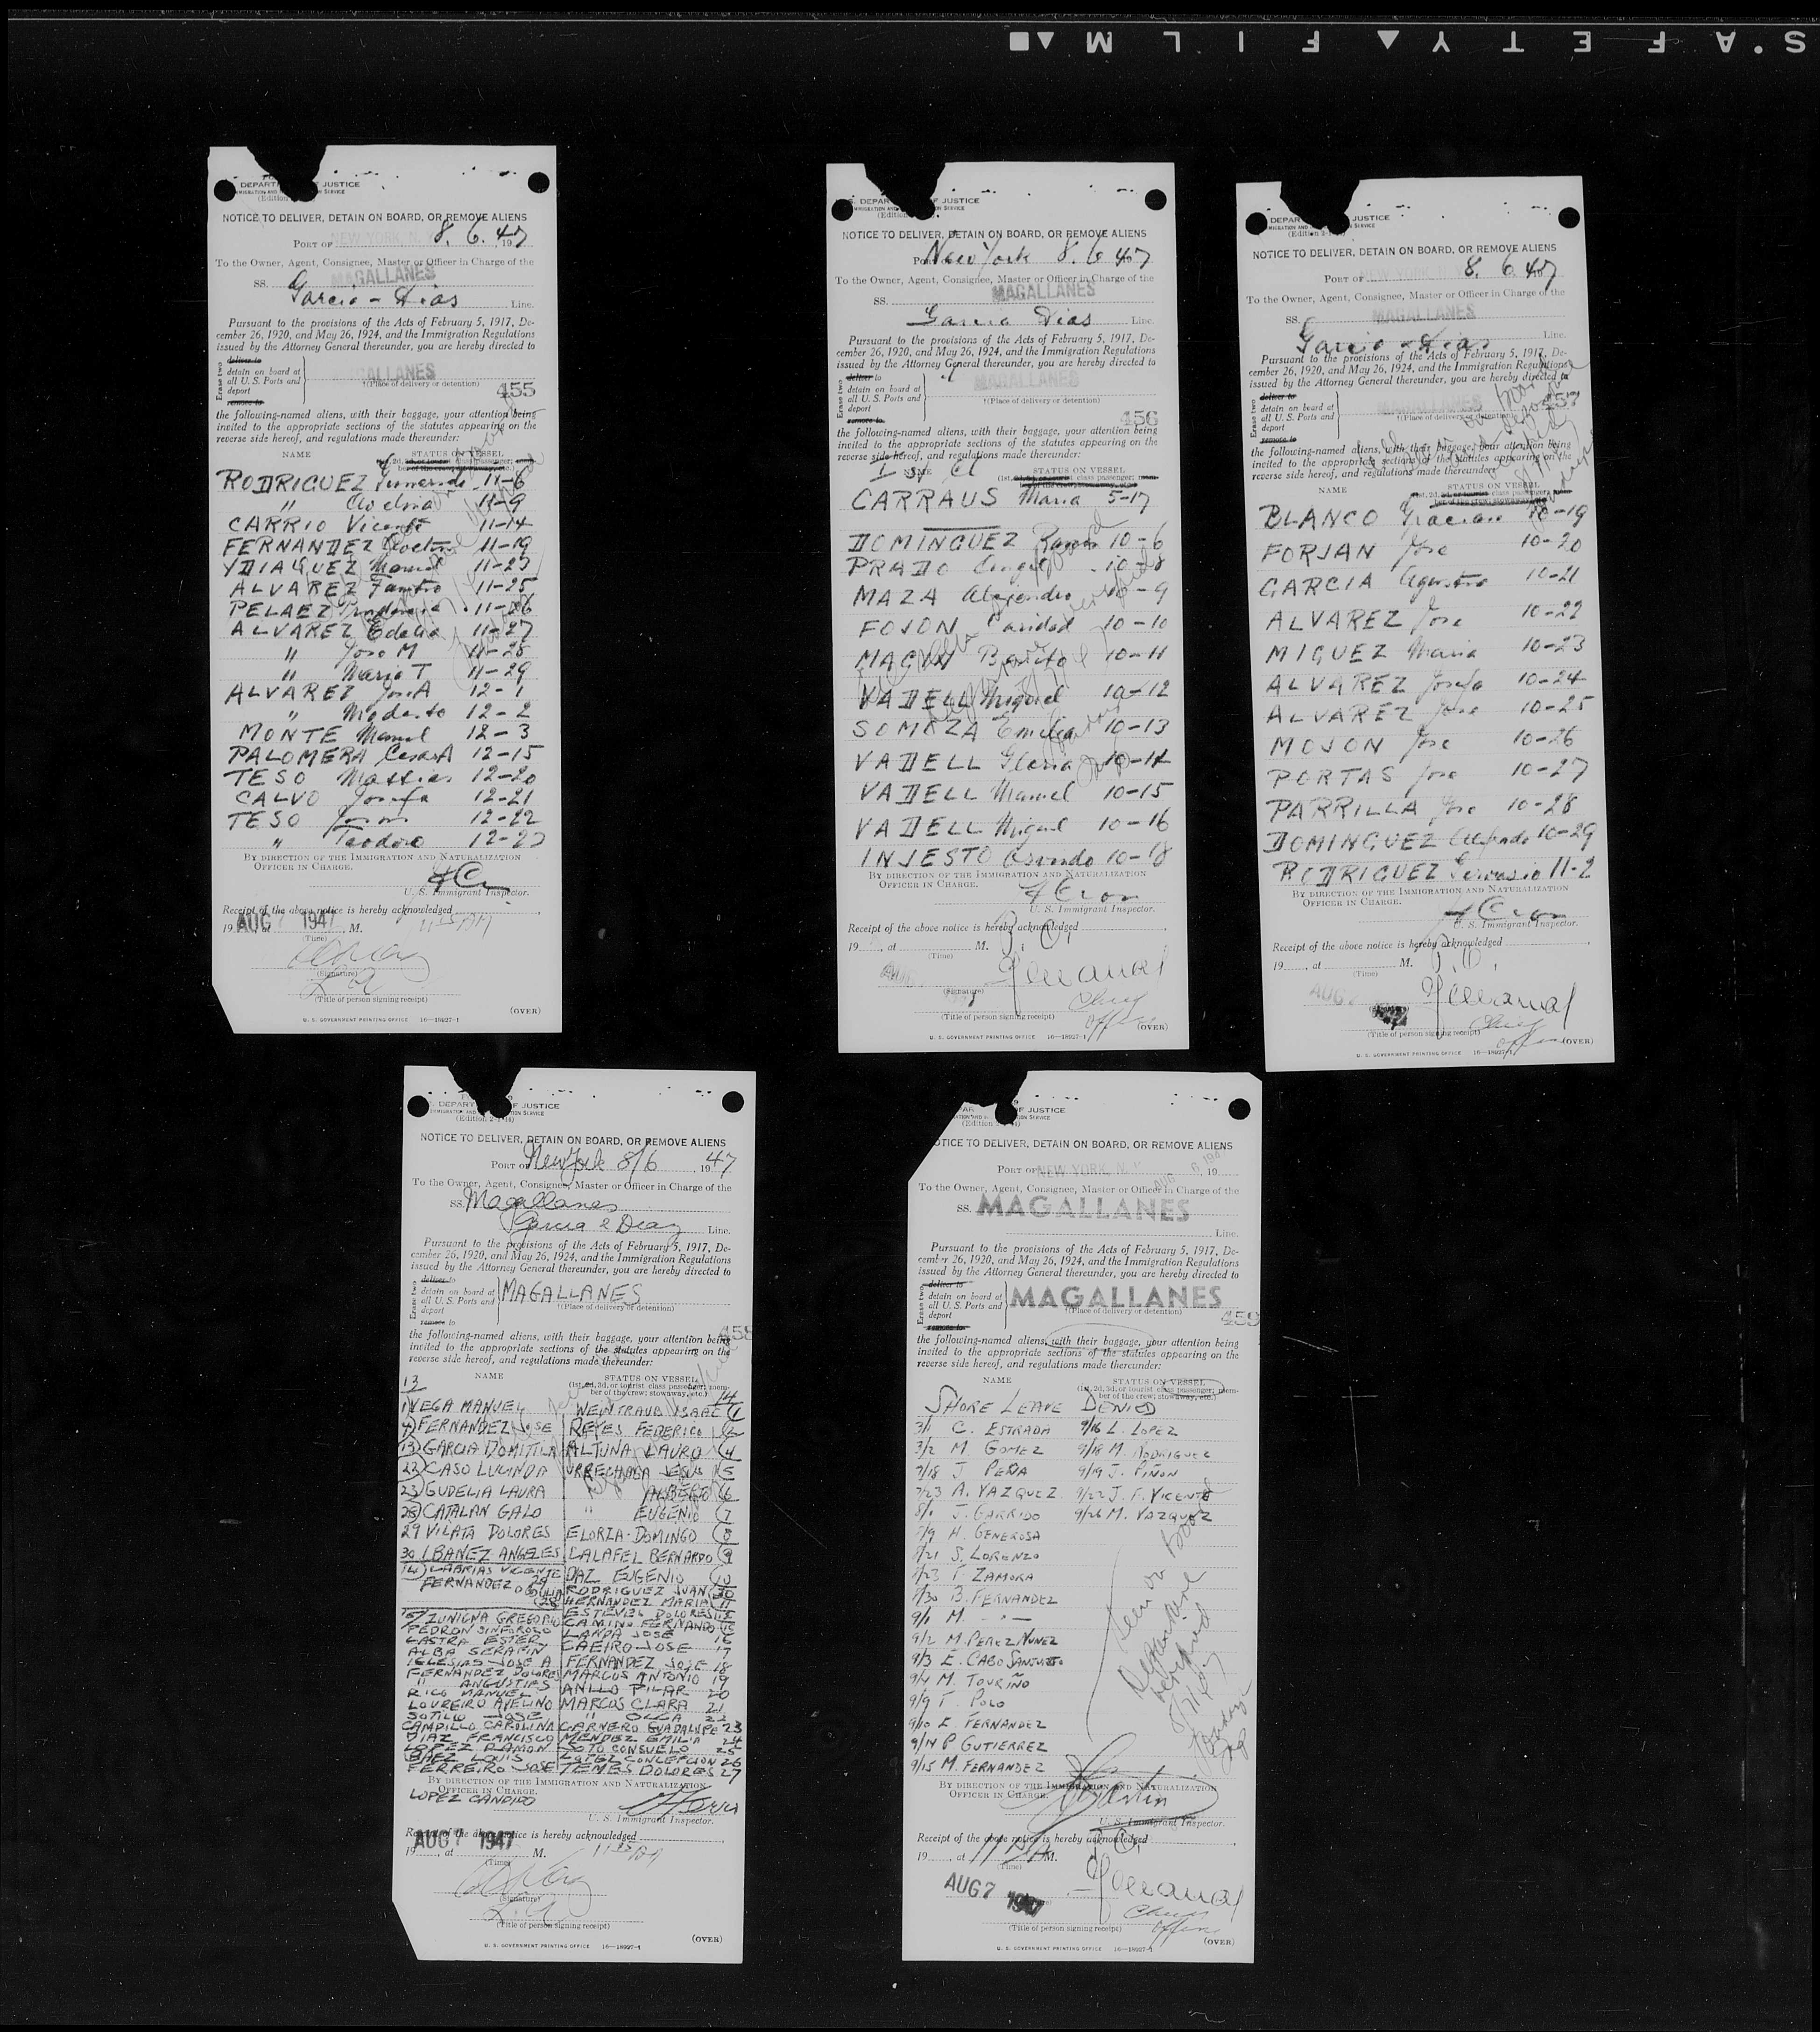 S·AFETY▲FILM▲■
DEPART OF JUSTICE
IMMIGRATION AND SERVICE
(Edition
NOTICE TO DELIVER, DETAIN ON BOARD, OR REMOVE ALIENS
PORT OF NEW YORK, N. Y. 8. 6. 1947
To the Owner, Agent, Consignee, Master or Officer in Charge of the
SS. MAGALLANES
Garcia - Dias Line.
Pursuant to the provisions of the Acts of February 5, 1917, De-
cember 26, 1920, and May 26, 1924, and the Immigration Regulations
issued by the Attorney General thereunder, you are hereby directed to
Erase two
deliver to
detain on board at
all U. S. Ports and
deport
remove to
MAGALLANES
†(Place of delivery or detention)
455
the following-named aliens, with their baggage, your attention being
invited to the appropriate sections of the statutes appearing on the
reverse side hereof, and regulations made thereunder:
NAME STATUS ON VESSEL
RODRIGUEZ 11-6
" 11-9
CARRIO Vicente 11-14
FERNANDEZ 11-19
YDIAQUEZ Manuel 11-23
ALVAREZ 11-25
PELAEZ 11-26
ALVAREZ Edelia 11-27
" Jose M 11-28
" Maria T 11-29
ALVAREZ Jose A 12-1
" Modesto 12-2
MONTE Manuel 12-3
PALOMERA Cesar A 12-15
TESO Mattias 12-20
CALVO Josefa 12-21
TESO 12-22
" Teodoro 12-23
BY DIRECTION OF THE IMMIGRATION AND NATURALIZATION
OFFICER IN CHARGE.
U. S. Immigrant Inspector.
Receipt of the above notice is hereby acknowledged
19 AUG 7 1947 M. 11 25 AM
(Time)
(Signature)
(Title of person signing receipt)
(OVER)
U. S. GOVERNMENT PRINTING OFFICE 16—18927-1
S. DEPAR JUSTICE
IMMIGRATION AND SERVICE
(Edition
NOTICE TO DELIVER, DETAIN ON BOARD, OR REMOVE ALIENS
Port New York 8. 6. 47
To the Owner, Agent, Consignee, Master or Officer in Charge of the
SS. MAGALLANES
Garcia Dias Line.
Pursuant to the provisions of the Acts of February 5, 1917, De-
cember 26, 1920, and May 26, 1924, and the Immigration Regulations
issued by the Attorney General thereunder, you are hereby directed to
Erase two
deliver to
detain on board at
all U. S. Ports and
deport
remove to
MAGALLANES
†(Place of delivery or detention)
456
the following-named aliens, with their baggage, your attention being
invited to the appropriate sections of the statutes appearing on the
reverse side hereof, and regulations made thereunder:
I st Cl
NAME STATUS ON VESSEL
CARRAUS Maria 5-17
DOMINGUEZ Ramon 10-6
PRADO Angel 10-8
MAZA Alejandro 10-9
FOJON Caridad 10-10
MACIN Benito 10-11
VADELL Miguel 10-12
SOMOZA Emilia 10-13
VADELL Gloria 10-14
VADELL Manuel 10-15
VADELL Miguel 10-16
INJESTO 10-18
BY DIRECTION OF THE IMMIGRATION AND NATURALIZATION
OFFICER IN CHARGE.
U. S. Immigrant Inspector.
Receipt of the above notice is hereby acknowledged
19 , at M.
(Time)
AUG
(Signature)
Chief
(Title of person signing receipt)
Officer
(OVER)
U. S. GOVERNMENT PRINTING OFFICE 16—18927-1
DEPAR JUSTICE
IMMIGRATION AND SERVICE
NOTICE TO DELIVER, DETAIN ON BOARD, OR REMOVE ALIENS
PORT OF NEW YORK 8. 6. 47
To the Owner, Agent, Consignee, Master or Officer in Charge of the
SS. MAGALLANES
Garcia - Dias Line.
Pursuant to the provisions of the Acts of February 5, 1917, De-
cember 26, 1920, and May 26, 1924, and the Immigration Regulations
issued by the Attorney General thereunder, you are hereby directed to
Erase two
deliver to
detain on board at
all U. S. Ports and
deport
remove to
MAGALLANES
†(Place of delivery or detention)
457
the following-named aliens, with their baggage, your attention being
invited to the appropriate sections of the statutes appearing on the
reverse side hereof, and regulations made thereunder:
NAME STATUS ON VESSEL
BLANCO Graciano 10-19
FORJAN Jose 10-20
GARCIA Agustin 10-21
ALVAREZ Jose 10-22
MIGUEZ Maria 10-23
ALVAREZ Josefa 10-24
ALVAREZ Jose 10-25
MOJON Jose 10-26
PORTAS Jose 10-27
PARRILLA Jose 10-28
DOMINGUEZ 10-29
RODRIGUEZ Gervasio 11-2
BY DIRECTION OF THE IMMIGRATION AND NATURALIZATION
OFFICER IN CHARGE.
U. S. Immigrant Inspector.
Receipt of the above notice is hereby acknowledged
19 , at M.
(Time)
AUG 7
Chief
(Title of person signing receipt)
Officer
(OVER)
U. S. GOVERNMENT PRINTING OFFICE 16—18927-1
DEPART OF JUSTICE
IMMIGRATION AND SERVICE
(Edition 2-1-44)
NOTICE TO DELIVER, DETAIN ON BOARD, OR REMOVE ALIENS
PORT OF New York 8/6 , 1947
To the Owner, Agent, Consignee, Master or Officer in Charge of the
SS. Magallanes
Garcia & Diaz Line.
Pursuant to the provisions of the Acts of February 5, 1917, De-
cember 26, 1920, and May 26, 1924, and the Immigration Regulations
issued by the Attorney General thereunder, you are hereby directed to
Erase two
deliver to
detain on board at
all U. S. Ports and
deport
remove to
MAGALLANES
†(Place of delivery or detention)
458
the following-named aliens, with their baggage, your attention being
invited to the appropriate sections of the statutes appearing on the
reverse side hereof, and regulations made thereunder:
NAME STATUS ON VESSEL
(1st, 2d, 3d, or tourist class passenger; mem-
ber of the crew; stowaway, etc.)
13 14
1 VEGA MANUEL WEINTRAUB ISAAC 1
4 FERNANDEZ JOSE REYES FEDERICO 2
13 GARCIA DOMITILA ALTUNA LAURO 4
22 CASO LUCINDA URRECHAGA JESUS 5
23 GUDELIA LAURA " ALBERTO 6
28 CATALAN GALO " EUGENIO 7
29 VILATA DOLORES ELORZA-DOMINGO 8
30 IBANEZ ANGELES LALAFEL BERNARDO 9
14 LABRIAS VICENTE DIAZ EUGENIO 10
FERNANDEZ 29 RODRIGUEZ JUAN 30
28 HERNANDEZ MARIA 11
ESTEVEZ DOLORES
15/ ZUNIGNA GREGORIO CAMINO FERNANDO
PEDRON SINFOROZO LANDA JOSE 16
CASTRA ESTER CAEIRO JOSE 17
ALBA SERAFIN
IGLESIAS JOSE A FERNANDEZ JOSE 18
FERNANDEZ DOLORES MARCOS ANTONIO 19
" ANGUSTIAS ANLLO PILAR 20
RICO MANUEL
LOUREIRO AVELINO MARCOS CLARA 21
SOTILLO JOSE " OLGA 22
CAMPILLO CAROLINA CARNERO GUADALUPE 23
DIAZ FRANCISCO MENDEZ EMILIA 24
LOPEZ RAMON SOTO CONSUELO 25
BAEZ LOUIS LOPEZ CONCEPCION 26
FERREIRO JOSE TEMES DOLORES 27
BY DIRECTION OF THE IMMIGRATION AND NATURALIZATION
OFFICER IN CHARGE.
LOPEZ CANDIDO
U. S. Immigrant Inspector.
Receipt of the above notice is hereby acknowledged
AUG 7 1947
19 , at M. 11 25 AM
(Time)
(Signature)
(Title of person signing receipt)
(OVER)
U. S. GOVERNMENT PRINTING OFFICE 16—18927-1
OF JUSTICE
NOTICE TO DELIVER, DETAIN ON BOARD, OR REMOVE ALIENS
PORT OF NEW YORK, N. Y. AUG 6 1947 19
To the Owner, Agent, Consignee, Master or Officer in Charge of the
SS. MAGALLANES
Line.
Pursuant to the provisions of the Acts of February 5, 1917, De-
cember 26, 1920, and May 26, 1924, and the Immigration Regulations
issued by the Attorney General thereunder, you are hereby directed to
Erase two
deliver to
detain on board at
all U. S. Ports and
deport
remove to
MAGALLANES
†(Place of delivery or detention)
459
the following-named aliens, with their baggage, your attention being
invited to the appropriate sections of the statutes appearing on the
reverse side hereof, and regulations made thereunder:
NAME STATUS ON VESSEL
(1st, 2d, 3d, or tourist class passenger; mem-
ber of the crew; stowaway, etc.)
SHORE LEAVE DENIED
3/1 C. ESTRADA 9/16 L. LOPEZ
3/2 M. GOMEZ 9/18 M. RODRIGUEZ
7/18 J PEÑA 9/19 J. PIÑON
7/23 A. VAZQUEZ 9/22 J. F. VICENTE
8/1 J. GARRIDO 9/26 M. VAZQUEZ
8/9 H. GENEROSA
8/21 S. LORENZO
8/23 T. ZAMORA
8/30 B. FERNANDEZ
9/1 M. — " —
9/2 M. PEREZ NUNEZ
9/3 E. CABO SANJUSTO
9/4 M. TOURIÑO
9/9 T. POLO
9/10 E. FERNANDEZ
9/14 P GUTIERREZ
9/15 M. FERNANDEZ
Seen on board
Departure
verified
8/7/47
BY DIRECTION OF THE IMMIGRATION AND NATURALIZATION
OFFICER IN CHARGE.
U. S. Immigrant Inspector.
Receipt of the above notice is hereby acknowledged
19 , at 11 M.
(Time)
AUG 7 1947
Chief
(Title of person signing receipt)
Officer
(OVER)
U. S. GOVERNMENT PRINTING OFFICE 16—18927-1